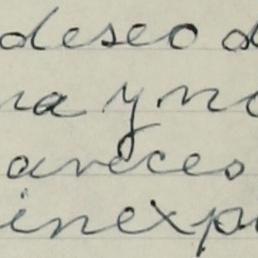 deseo d
na y no
areces
inexp